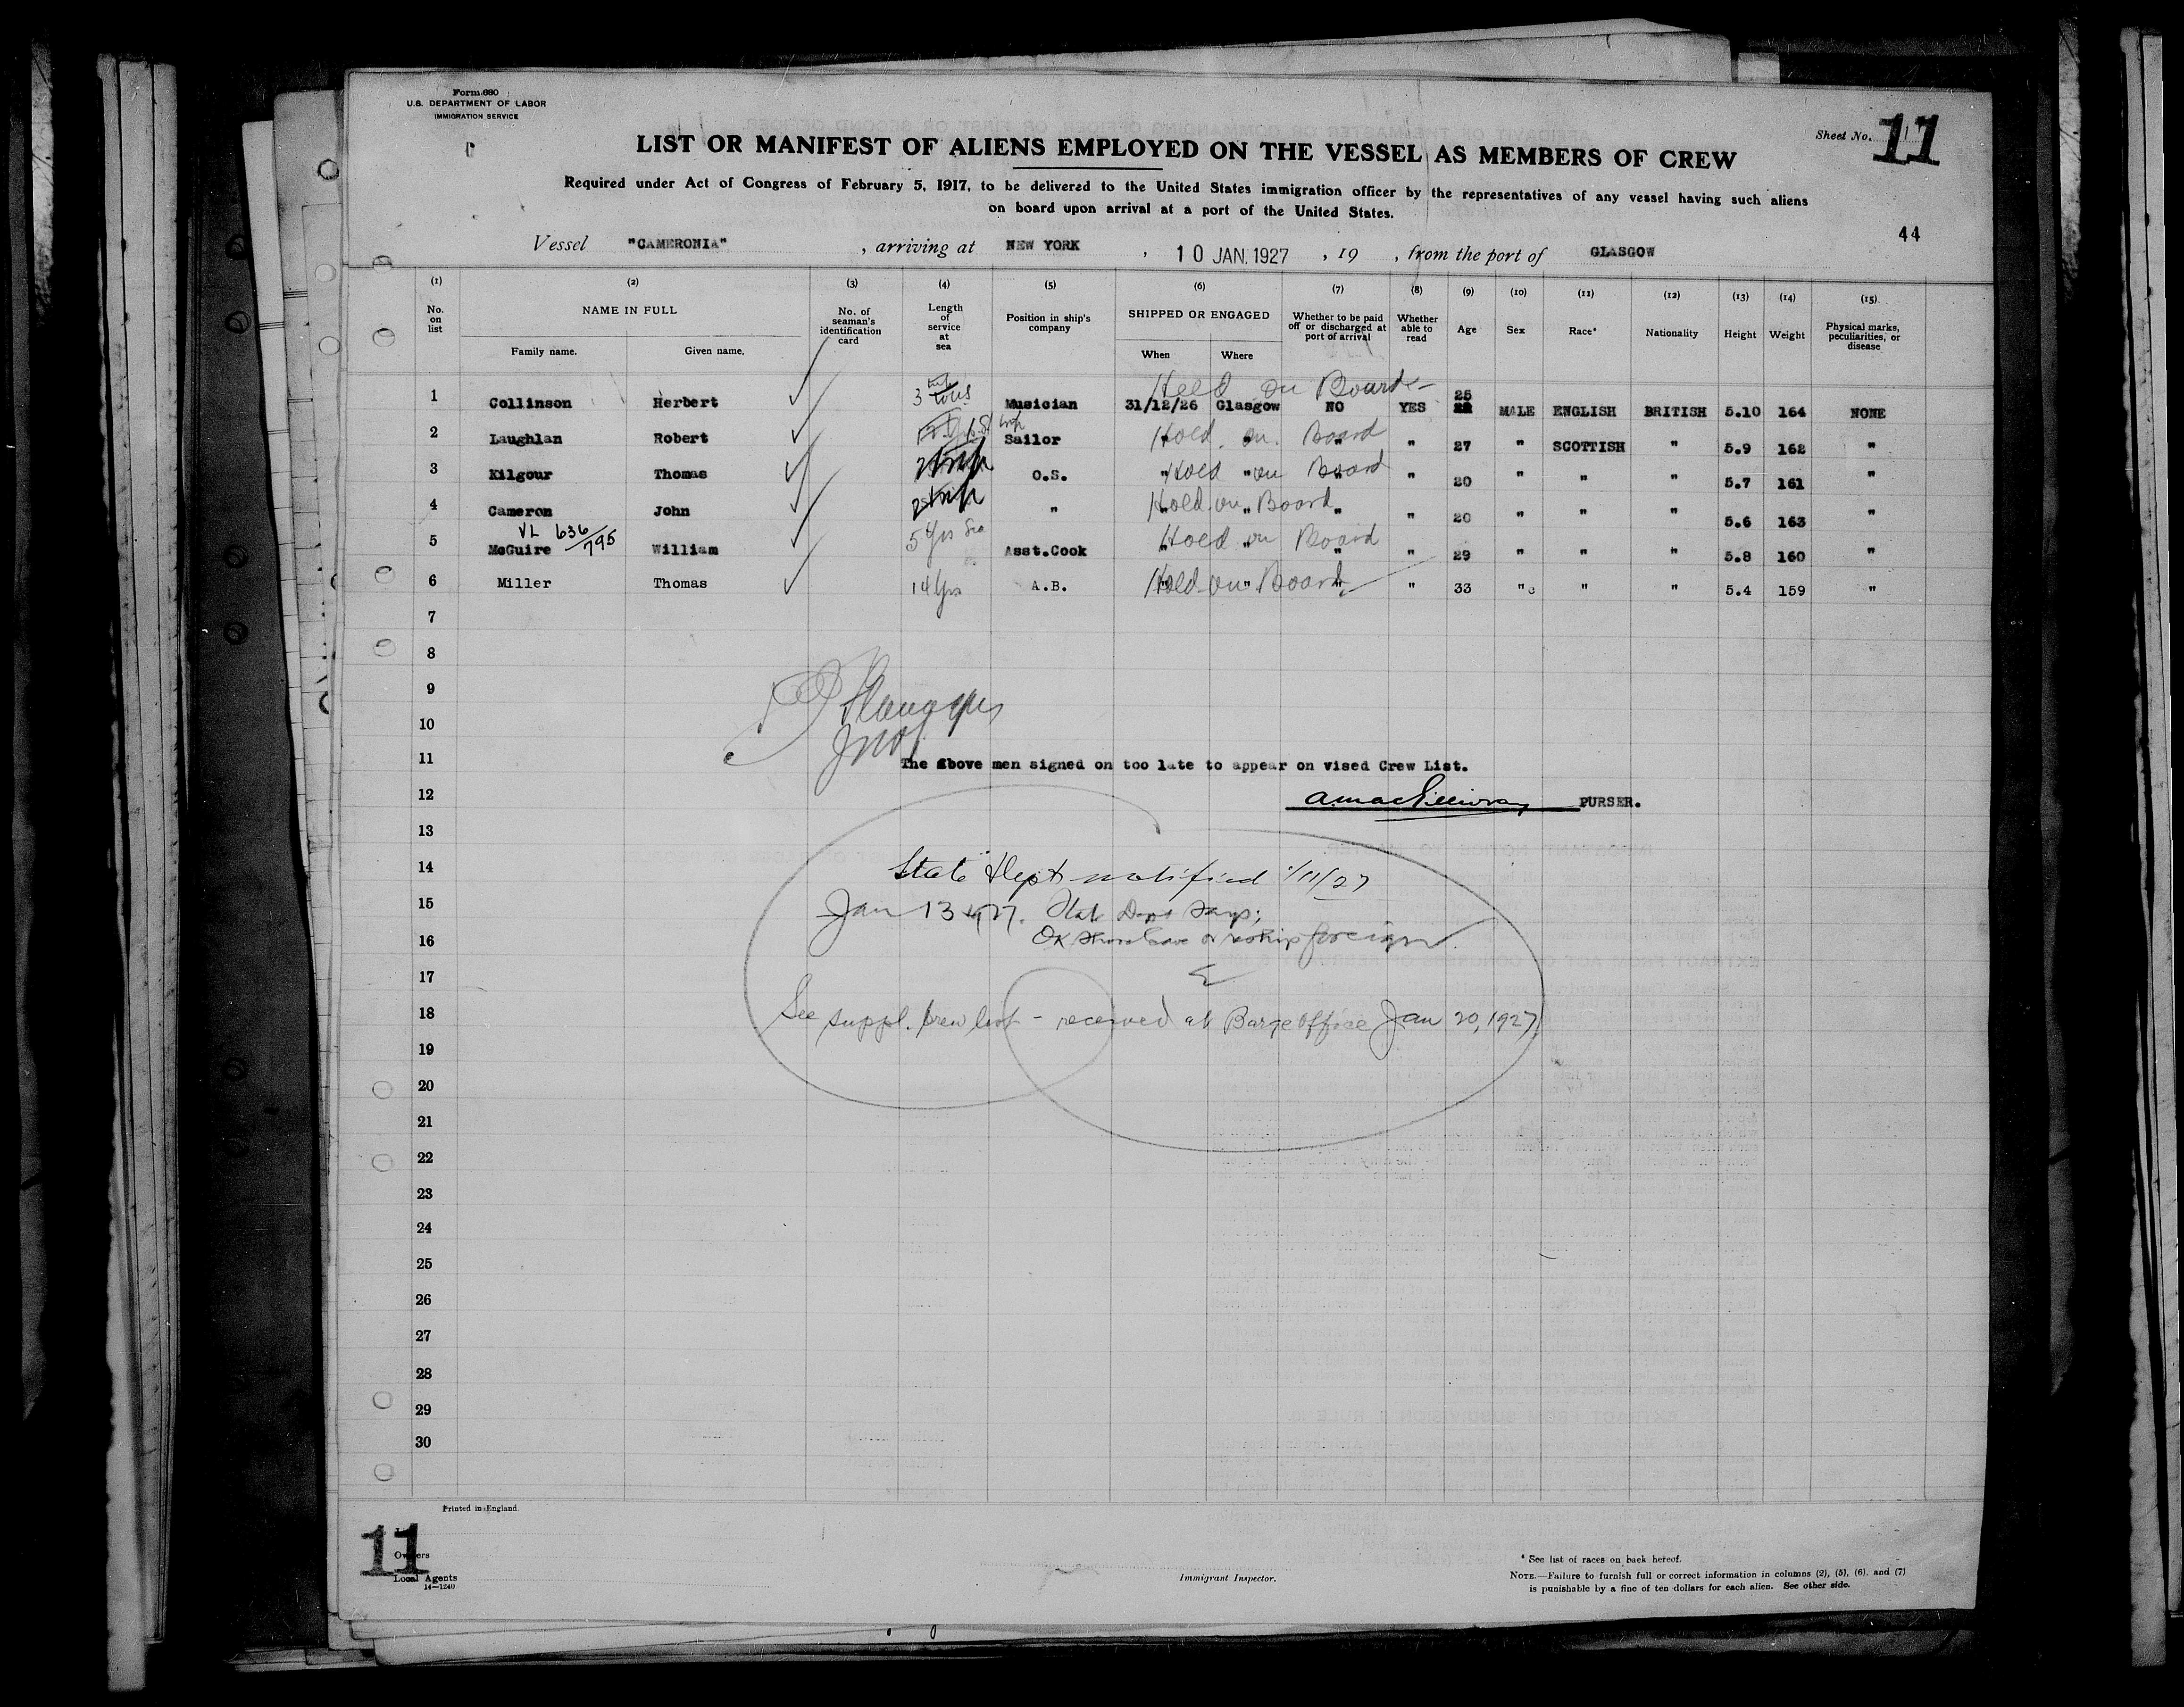 Form 680
U.S. DEPARTMENT OF LABOR
IMMIGRATION SERVICE
Sheet No. 11
LIST OR MANIFEST OF ALIENS EMPLOYED ON THE VESSEL AS MEMBERS OF CREW
Required under Act of Congress of February 5, 1917, to be delivered to the United States immigration officer by the representatives of any vessel having such aliens
on board upon arrival at a port of the United States.
44
Vessel "CAMERONIA" , arriving at NEW YORK , 10 JAN. 1927 , 19 , from the port of GLASGOW
(1) (2) (3) (4) (5) (6) (7) (8) (9) (10) (11) (12) (13) (14) (15)
No. on list NAME IN FULL Family name. Given name. No. of seaman's identification card Length of service at sea Position in ship's company SHIPPED OR ENGAGED When Where Whether to be paid off or discharged at port of arrival Whether able to read Age Sex Race* Nationality Height Weight Physical marks, peculiarities, or disease
Held on Board
1 Collinson Herbert 3 Musician 31/12/26 Glasgow NO YES 25 MALE ENGLISH BRITISH 5.10 164 NONE
2 Laughlan Robert Sailor Hold on Board " 27 " SCOTTISH " 5.9 162 "
3 Kilgour Thomas O.S. " Hold " on Board " 20 " " " 5.7 161 "
4 Cameron John " Hold on Board " " 20 " " " 5.6 163 "
VL 636/795
5 McGuire William 5 Yrs Sea Asst.Cook Hold on Board " 29 " " " 5.8 160 "
6 Miller Thomas 14 Yrs A.B. Hold on Board " 33 " " " 5.4 159 "
7
8
9
10
11 The above men signed on too late to appear on vised Crew List.
12 PURSER.
13
14 State Dept notified 1/11/27
15 Jan 13 1927. State Dept says;
16 OK shore leave or reship foreign
17
18 See suppl. crew list - received at Barge Office Jan 20, 1927
19
20
21
22
23
24
25
26
27
28
29
30
Printed in England.
11
Owners
Local Agents
14—1240
Immigrant Inspector.
* See list of races on back hereof.
NOTE.—Failure to furnish full or correct information in columns (2), (5), (6), and (7)
is punishable by a fine of ten dollars for each alien. See other side.